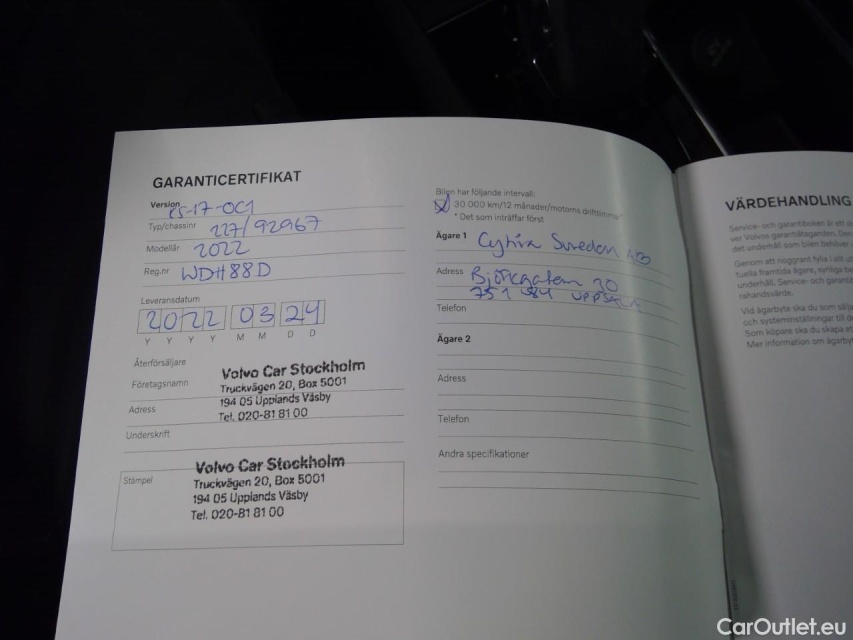 GARANTICERTIFIKAT
Version
Typ/chassinr 227/92967
Modellår 2022
Reg.nr WDH88D
Leveransdatum
2022 03 24
Y Y Y Y M M D D
Återförsäljare
Företagsnamn Volvo Car Stockholm
Truckvägen 20, Box 5001
Adress 194 05 Upplands Väsby
Tel. 020-81 81 00
Underskrift
Stämpel Volvo Car Stockholm
Truckvägen 20, Box 5001
194 05 Upplands Väsby
Tel. 020-81 81 00
Bilen har följande intervall:
30 000 km/12 månader/motorns drifttimma*
* Det som inträffar först
Ägare 1 Cytiva Sweden AB
Adress Björkgatan 30
751 84 UPPSALA
Telefon
Ägare 2
Adress
Telefon
Andra specifikationer
VÄRDEHANDLING
Service- och garantiboken är ett
ver Volvos garantiåtaganden. Den
det underhåll som bilen behöver
Genom att noggrant fylla i allt
tuella framtida ägare, synliga
underhåll. Service- och garanti
rahandsvärde.
Vid ägarbyte ska du som sälja
och systeminställningar till
Som köpare ska du skapa
Mer information om ägarby
CarOutlet.eu